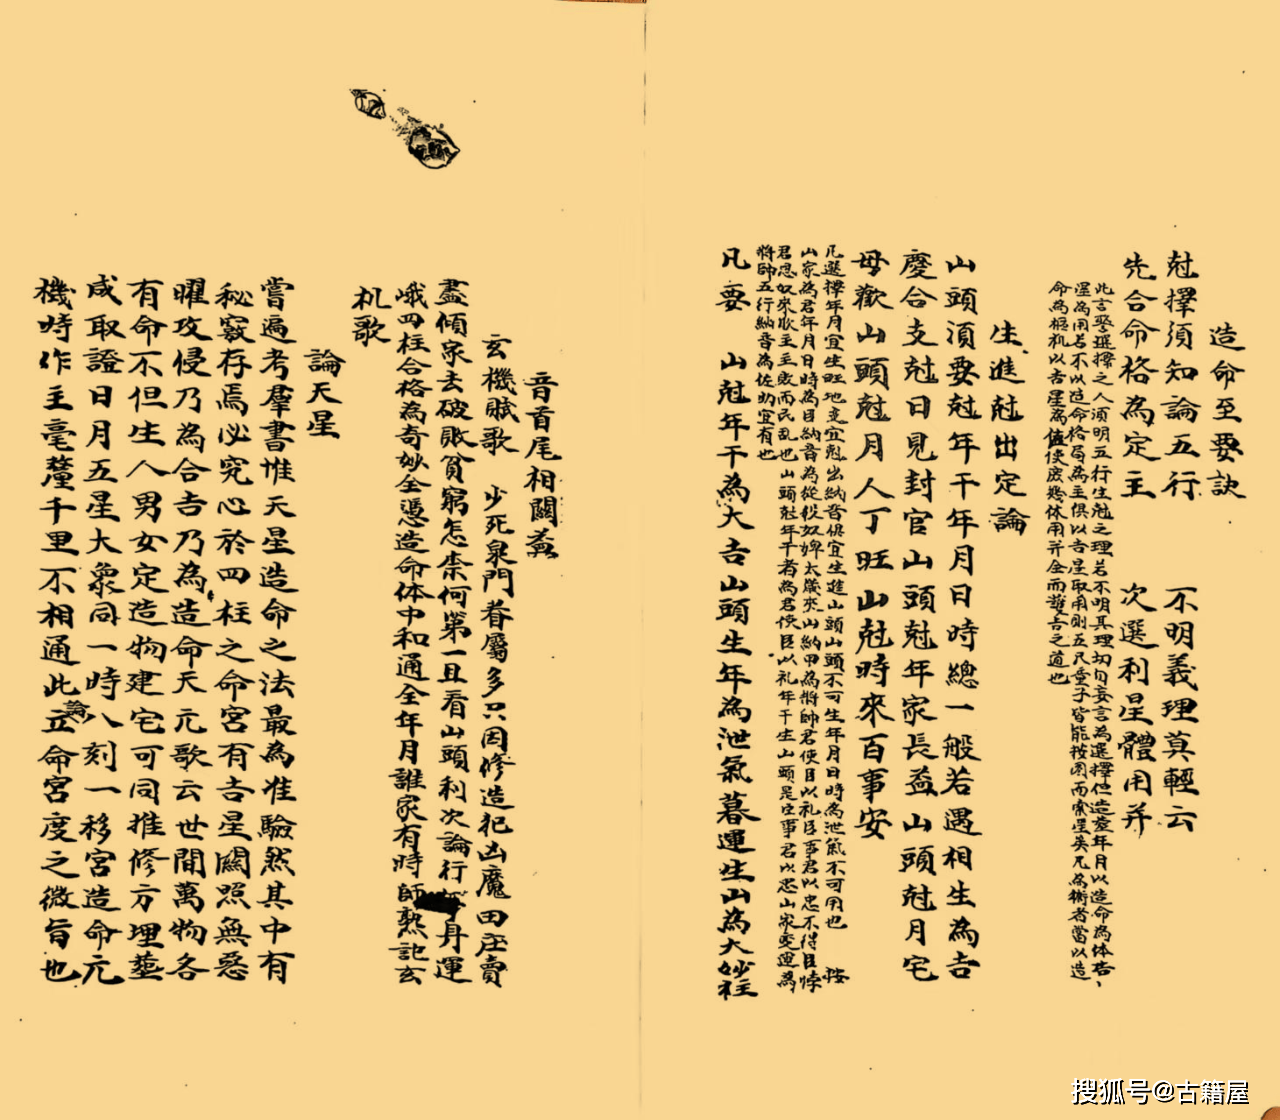 造命至要訣
尅擇須知論五行　不明義理莫輕云
先合命格為定主　次選利星體用并
此言警選擇之人須明五行生尅之理若不明其理切勿妄言為選擇但造塟年月以造命為体吉
星為用若不以造命格局為主俱以吉星取用則五尺童子皆能按圖而索星矣凡為術者當以造
命為樞机以吉星為值使庶幾体用并全而護吉之道也
生進尅出定論
山頭須要尅年干年月日時總一般若遇相生為吉
慶合支尅日見封官山頭尅年家長益山頭尅月宅
母歡山頭尅月人丁旺山尅時來百事安
凡選擇年月宜生旺地支宜尅出納音俱宜生進山頭山頭不可生年月日時為泄氣不可用也　按
山家為君年月日時為臣納音為從役奴婢太歲來山納甲為將帥君使臣以礼臣事君以忠不得臣悖
君忠奴來欺主主敗而民乱也山頭尅年干者為君使臣以礼年干生山頭是臣事君以忠山家變運為
將帥五行納音為佐助宜有也
凡要　山尅年干為大吉山頭生年為泄氣暮運生山為大妙柱
音首尾相關益
玄機賦歌　少死泉門眷屬多只因修造犯凶魔田庄賣
盡傾家去破敗貧窮怎柰何第一且看山頭利次論行身運
峨四柱合格為奇妙全憑造命体中和通全年月誰家有時師熟記玄
机歌
論天星
嘗遍考羣書惟天星造命之法最為准驗然其中有
秘竅存焉必究心於四柱之命宮有吉星關照無惡
曜攻侵乃為合吉乃為造命天元歌云世間萬物各
有命不但生人男女定造物建宅可同推修方埋塟
咸取證日月五星大象同一時八刻一移宮造命元
機時作主毫釐千里不相通此論立命宮度之微旨也
搜狐号@古籍屋